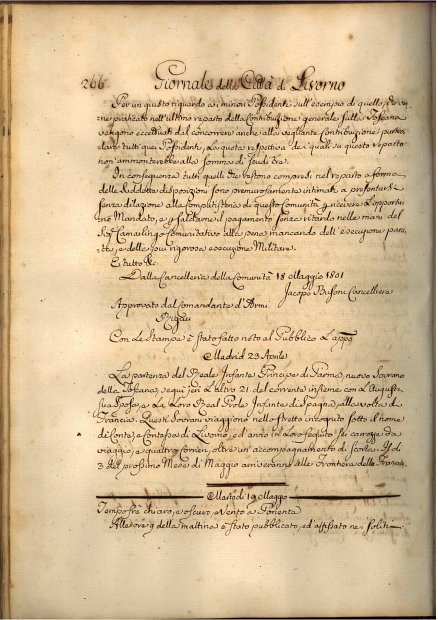 266 Giornale della Città di Livorno
Per un giusto riguardo ai minori Possidenti sull'esempio di quello, che ve
ne praticato nell'ultimo reparto della Contribuzione generale sulla Toscana
vengono eccettuati dal concorrere anche alla vegliante Contribuzione partico
lare tutti quei Possidenti, la quota respettiva de i quali su questo reparto
non ammonterebbe alla somma di Scudi tre.
In conseguenza tutti quelli che restono compresi nel reparto a forma
delle suddette disposizioni sono premurosamente intimati a presentarsi
senza dilazione alla Computisteria di questa Comunità a ricevere l'opportu
no Mandato, e a saldarne il pagamento senza ritardo nelle mani del
Sig.r Camarlingo Comunitativo alla pena mancando dell'esecuzione para
ta, e della più rigorosa esecuzione Militare.
E tutto &c.
Dalla Cancelleria della Comunità 18 Maggio 1801
Jacopo Busoni Cancelliere
Approvato dal Comandante d'Armi
Con le Stampe è stato fatto noto al Pubblico
Madrid 23 Aprile
La partenza del Reale Infante Principe di Parma, nuovo Sovrano
della Toscana, seguì jeri l'altro 21. del corrente insieme con l'August
sua Sposa, e la Loro Real Prole Infante di Spagna, alla volta di
Francia. Questi Sovrani viaggiono nello stretto incognito sotto il nome
di Conte, e Contessa di Livorno, ed anno in loro seguito sei carrozze da
viaggio, e quattro Corrieri, oltre un'accompagnamento di scorta. Il dì
3 del prossimo Mese di Maggio arriveranno alle Frontiere della Francia.
Martedì 19 Maggio
Tempo fra chiaro, e oscuro, e Vento a Ponente
Alle ore 9 della mattina è stato pubblicato, ed affissato nei soliti